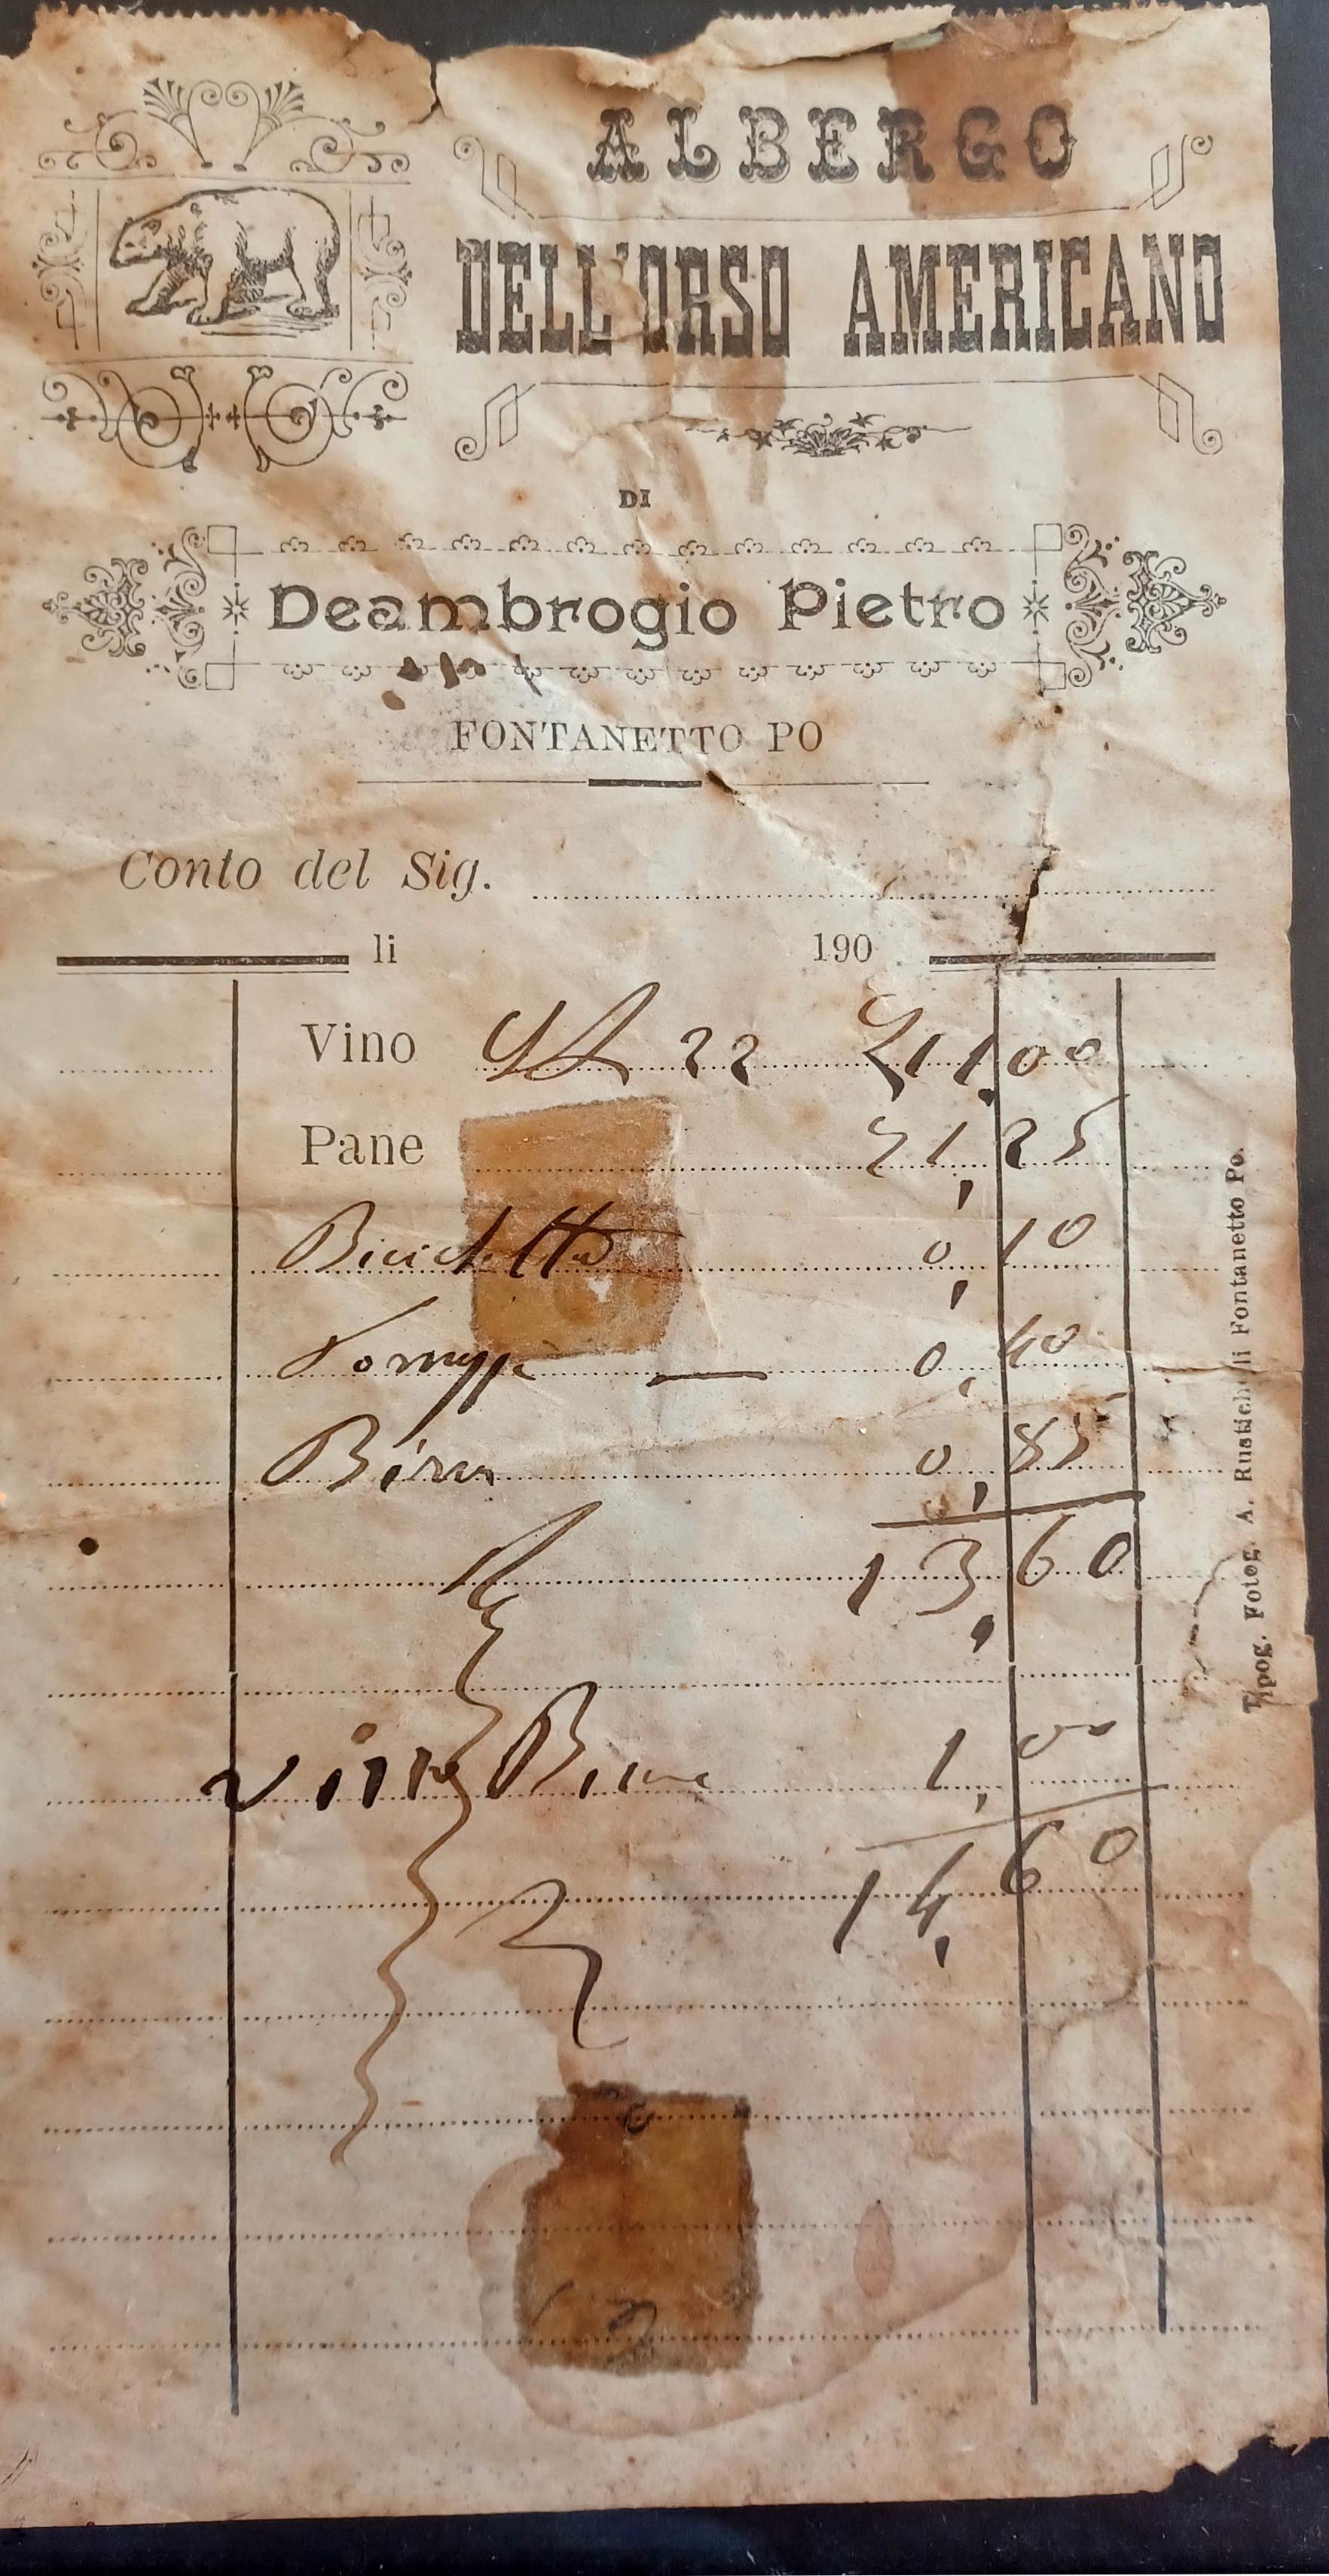 ALBERGO
DELL'ORSO AMERICANO
DI
Deambrogio Pietro
FONTANETTO PO
Conto del Sig.
li 190
Vino 22 L 11,00
Pane L 1,25
Bicicletta 0,10
0,40
Birra 0,85
13,60
1,00
14,60
Tipog. Fotog. A. Rustichelli Fontanetto Po.